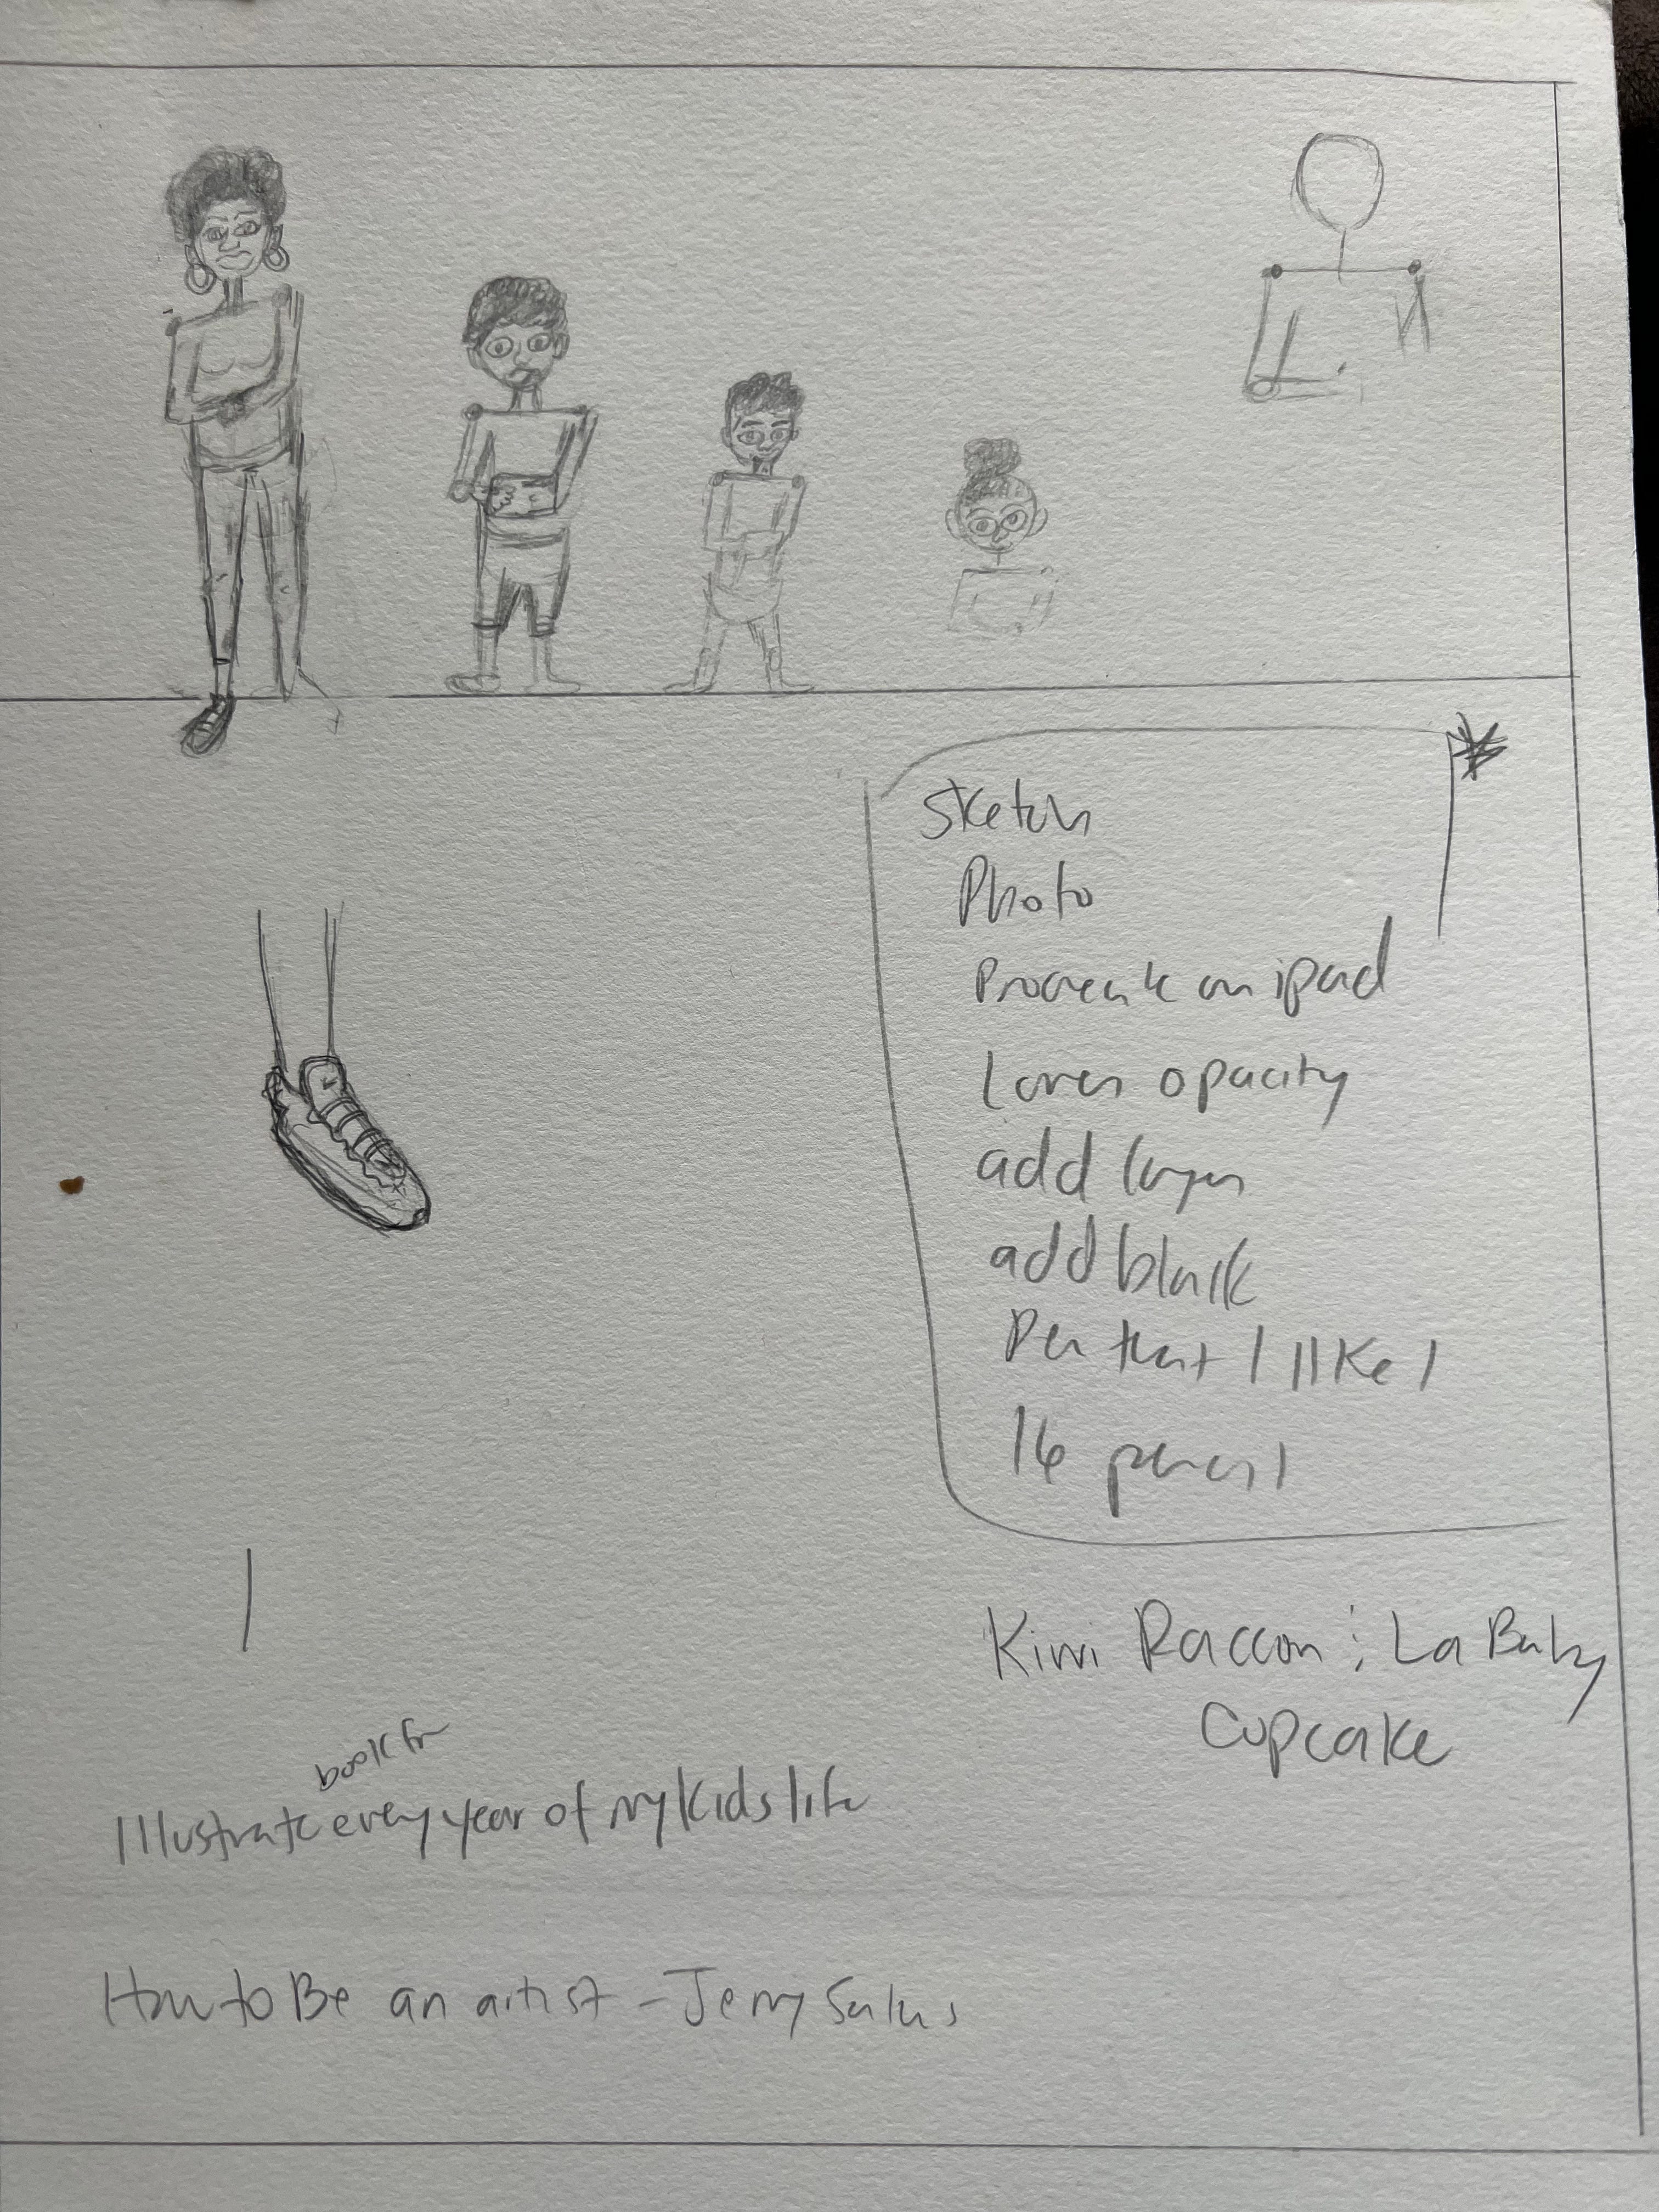 Sketch
Photo
Procreate on ipad
Lower opacity
add layer
add black
Pen that I like /
16 pencil
Kiwi Raccoon : La Baby
Cupcake
book for
Illustrate every year of my kids life
How to Be an artist - Jerry